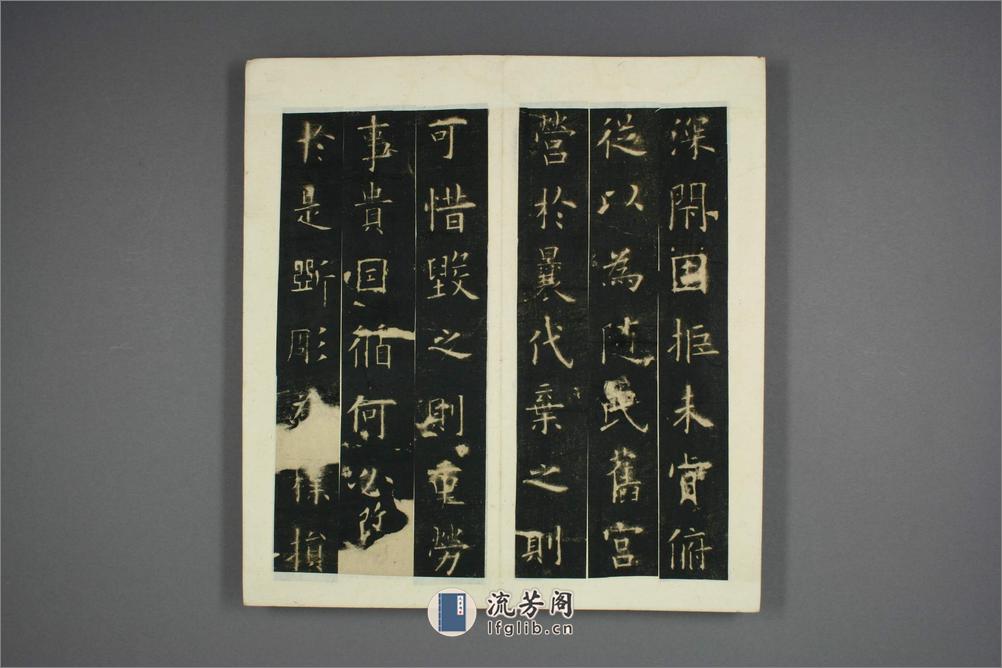 深閇固拒未肯俯
從以為随氏舊宮
營於曩代棄之則
可惜毀之則重勞
事貴因循何必改
於是斲彫為樸損
流芳阁
lfglib.cn